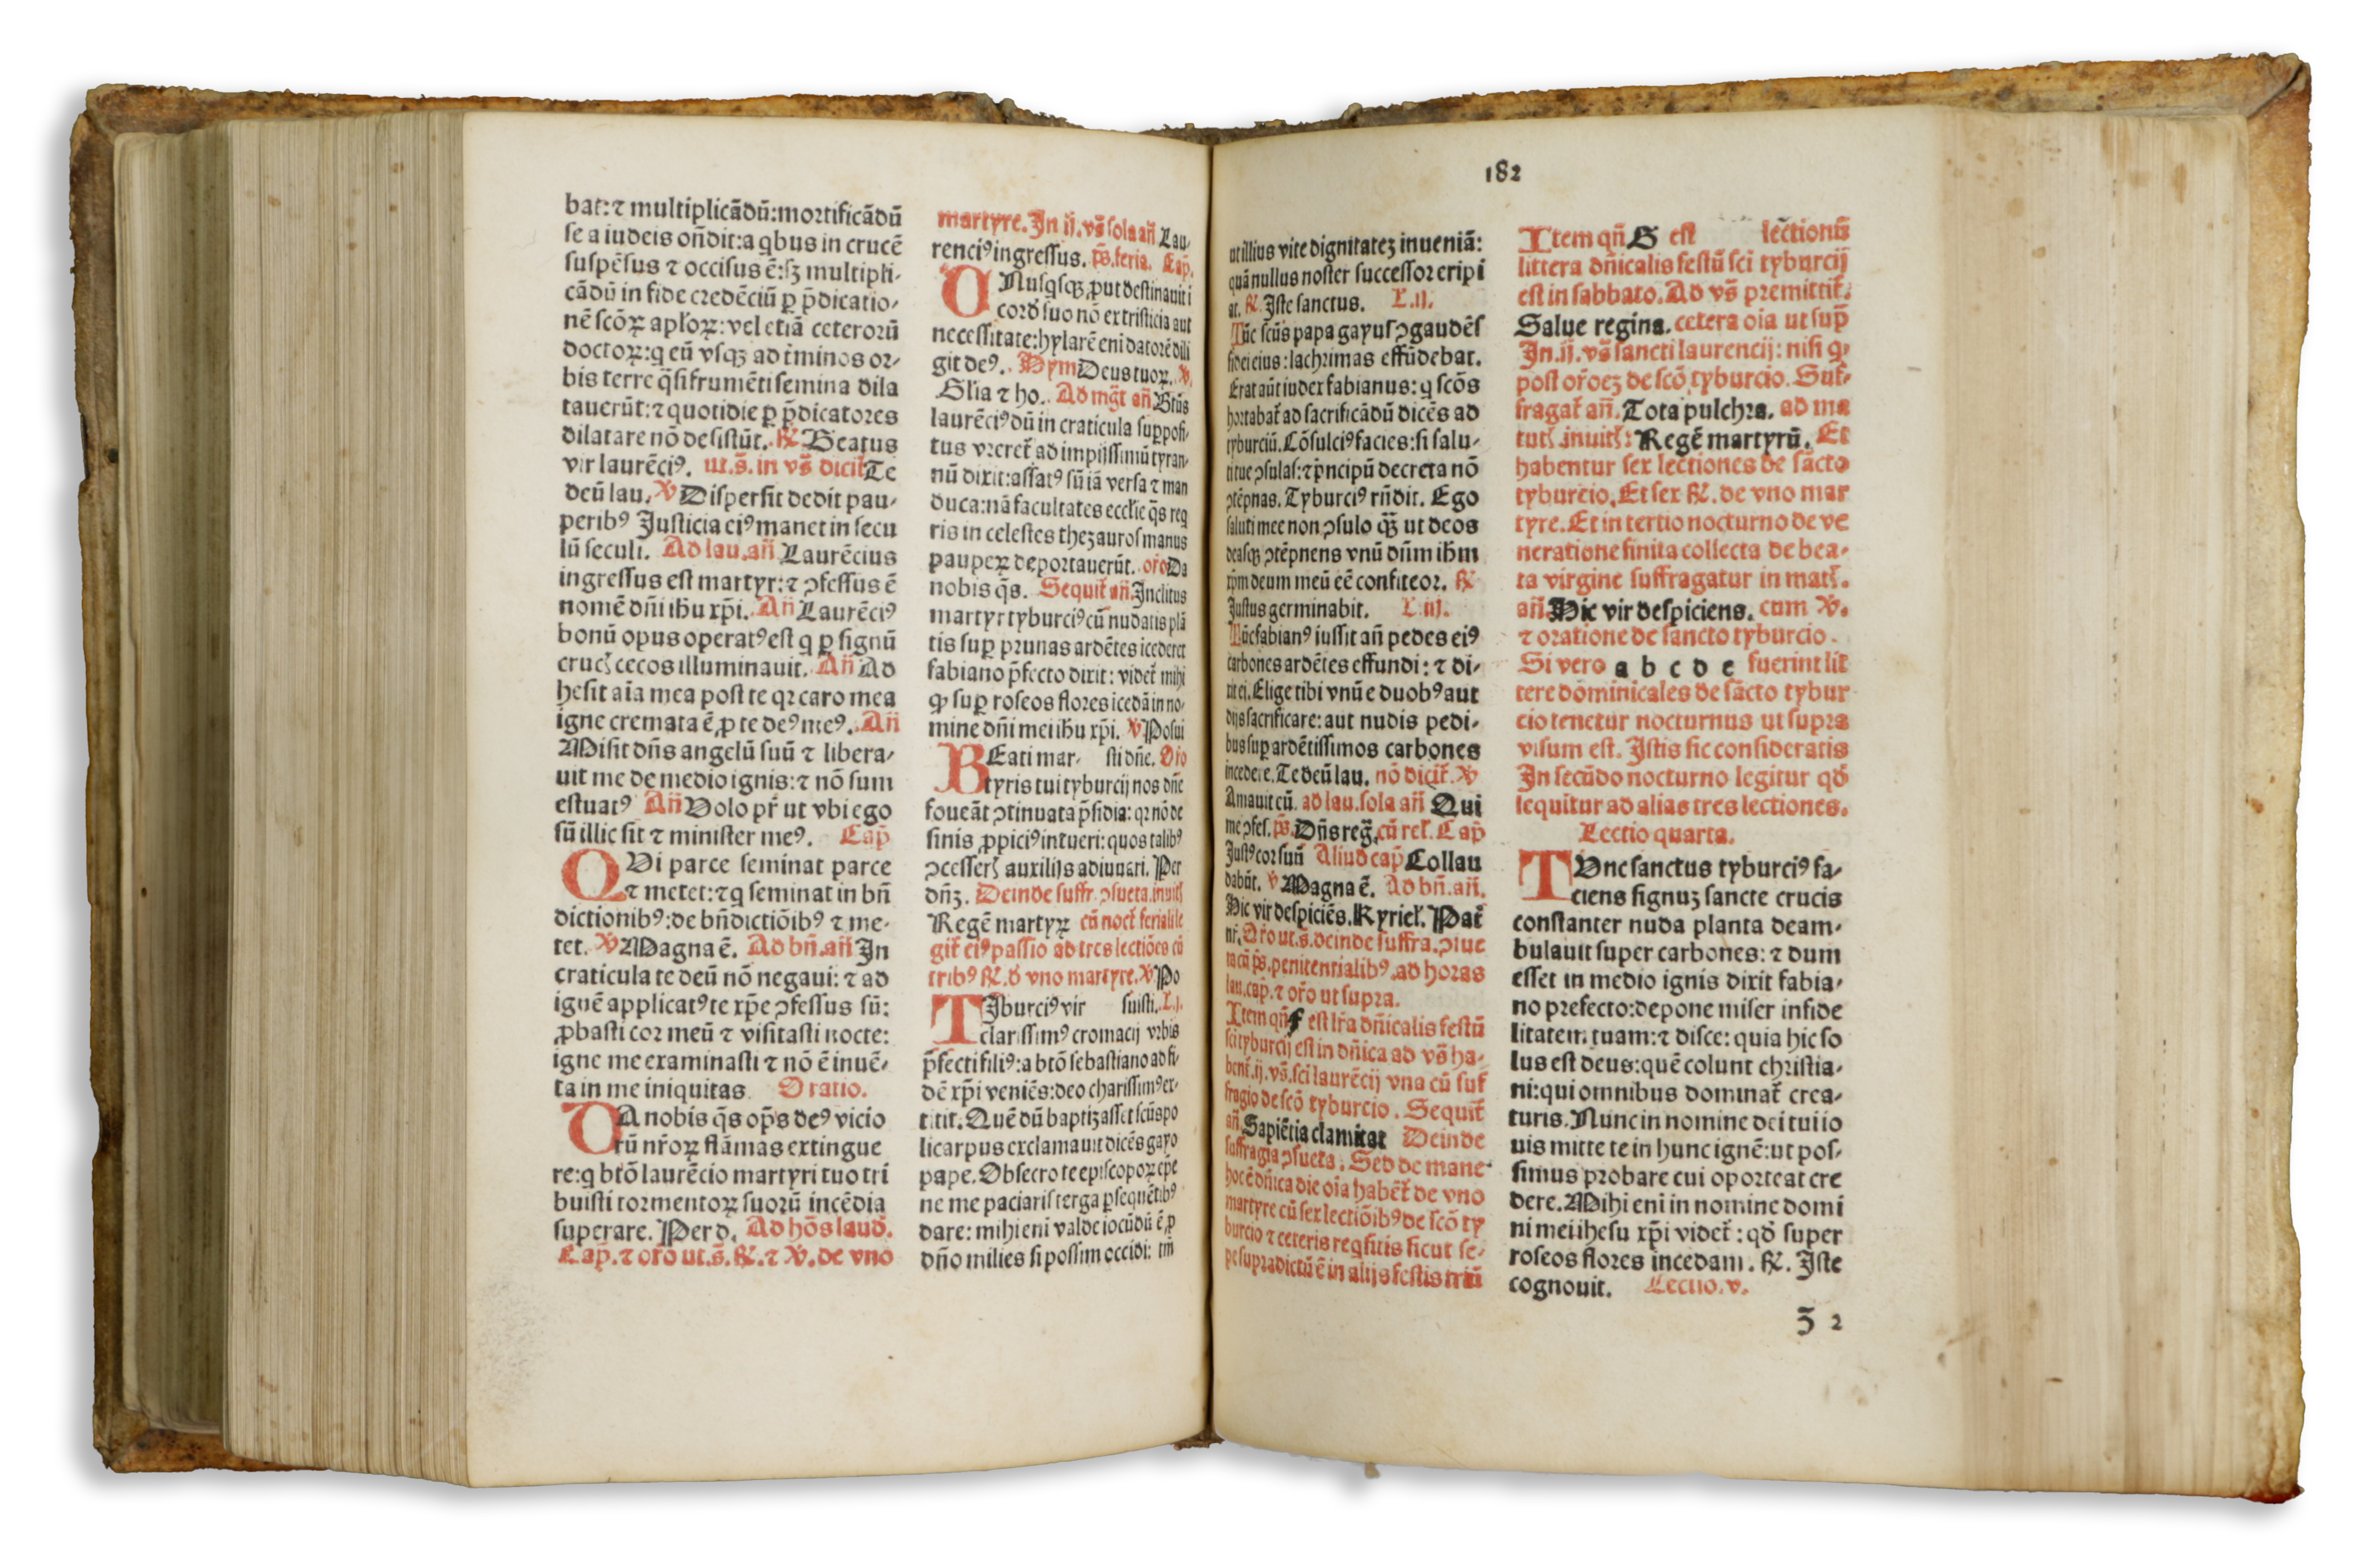 bat:⁊ multiplicãdũ:mortificãdũ
se a iudeis oñdit:a qbus in crucẽ
suspẽsus ⁊ occisus ẽ:sꝫ multipli-
cãdũ in fide credẽciũ ꝑ p̃dicatio-
nẽ scõꝝ apl'oꝝ:vel etiã ceterorũ
doctoꝝ:q eũ vsqꝫ ad t̃minos or-
bis terre q̃si frumẽti semina dila
tauerũt:⁊ quotidie ꝑ p̃dicatores
dilatare nõ desistũt. ℟ Beatus
vir laurẽciꝰ. ut.s̃. in vs̃ dicit̃ Te
deũ lau. ℣ Dispersit dedit pau-
peribꝰ Justicia eiꝰ manet in secu
lũ seculi. Ad lau.añ Laurẽcius
ingressus est martyr:⁊ ↄfessus ẽ
nomẽ dñi ihu xp̃i. Añ Laurẽciꝰ
bonũ opus operatꝰ est q ꝑ signũ
cruc̃ cecos illuminauit. Añ Ad
hesit aĩa mea post te qꝛ caro mea
igne cremata ẽ ꝓ te deꝰ meꝰ. Añ
Misit dñs angelũ suũ ⁊ libera-
uit me de medio ignis:⁊ nõ sum
estuatꝰ Añ Volo pr̃ ut vbi ego
sũ illic sit ⁊ minister meꝰ. Cap̃
QVi parce seminat parce
⁊ metet:⁊ q seminat in bñ
dictionibꝰ:de bñdictiõibꝰ ⁊ me-
tet. ℣ Magna ẽ. Ad bñ.añ In
craticula te deũ nõ negaui:⁊ ad
ignẽ applicatꝰ te xp̃e ↄfessus sũ:
ꝓbasti cor meũ ⁊ visitasti nocte:
igne me examinasti ⁊ nõ ẽ inuẽ-
ta in me iniquitas Oratio.
DA nobis q̃s op̃s deꝰ vicio
rũ nr̃oꝝ flãmas extingue
re:q btõ laurẽcio martyri tuo tri
buisti tormentoꝝ suorũ incẽdia
superare. Per d. Ad hõs laud̃.
Cap̃.⁊ or̃o ut.s̃.℟.⁊ ℣. de vno
martyre. In ij.vs̃ sola añ Lau-
renciꝰ ingressus. p̃s.feria. Cap̃.
VNusqsqꝫ ꝓut destinauit i
cord̃ suo nõ ex tristicia aut
necessitate:hylarẽ eni datorẽ dili
git deꝰ. Hym Deus tuoꝝ. ℣.
Glia ⁊ ho. Ad mg̃t añ Btũs
laurẽciꝰ dũ in craticula supposi-
tus vreret̃ ad impijssimũ tyran-
nũ dixit:assatꝰ sũ iã versa ⁊ man
duca:nã facultates eccl'ie q̃s req
ris in celestes thezauros manus
pauperꝝ deportauerũt. or̃o Da
nobis q̃s. Sequit̃ añ Inclitus
martyr tyburciꝰ cũ nudatis plã
tis suꝑ prunas ardẽtes icederet
fabiano p̃fecto dixit: videt̃ mihi
ꝙ suꝑ roseos flores icedã in no-
mine dñi mei ihu xp̃i. ℣ Posui
BEati mar- sti dñe. Or̃o
tyris tui tyburcij nos dñe
foueãt ↄtinuata p̃sidia: qꝛ nõ de
sinis ꝓpiciꝰ intueri: quos talibꝰ
ↄcesser̃ auxilijs adiuuari. Per
dñꝫ. Deinde suffr. ↄsueta.inuit̃
Regẽ martyꝝ cũ noct̃ feriali le
git̃ eiꝰ passio ad tres lectiões cũ
tribꝰ ℟.d̃ vno martyre.℣ Po
TIburciꝰ vir suisti. L.j.
clarissimꝰ cromacij vrbis
p̃fecti filiꝰ:a btõ sebastiano ad fi-
dẽ xp̃i veniẽs:deo charissimꝰ ex-
titit. Quẽ dũ baptizasset scũs po
licarpus exclamauit dicẽs gayo
pape. Obsecro te episcopoꝝ ep̃e
ne me paciaris terga ꝑsequẽtibꝰ
dare: mihi eni valde iocũdũ ẽ ꝓ
dño milies si possim occidi: tm̃
182
ut illius vite dignitateꝫ inueniã:
quã nullus noster successor eripi
at. ℟. Iste sanctus. L.ij.
Tũc scũs papa gayus ↄgaudẽs
fidei eius:lachrimas effũdebat.
Erat aũt iudex fabianus: q scõs
hortabat̃ ad sacrificãdũ dicẽs ad
tyburciũ. Cõsulciꝰ facies:si salu-
ti tue ↄsulas:⁊ p̃ncipũ decreta nõ
ↄtẽpnas. Tyburciꝰ rñdit. Ego
saluti mee non ↄsulo qꝫ̃ ut deos
deasqꝫ ↄtẽpnens vnũ dũm ihm
xp̃m deum meũ eẽ confiteor. ℟
Justus germinabit. L.iij.
Tũc fabianꝰ iussit añ pedes eiꝰ
carbones ardẽtes effundi: ⁊ di-
xit ei. Elige tibi vnũ e duobꝰ aut
dijs sacrificare: aut nudis pedi-
bus suꝑ ardẽtissimos carbones
incedere. Te deũ lau. nõ dicit̃. ℣
Amauit eũ. ad lau. sola añ Qui
me ↄfes. p̃s. Dñs reg̃. cũ rel̃. Cap̃
Justꝰ cor suũ Aliud cap̃ Collau
dabũt. ℣ Magna ẽ. Ad bñ.añ.
Hic vir despiciẽs. Kyriel̃. Pat̃
nr̃. Or̃o ut.s.deinde suffra. ↄsue
ta cũ p̃s. penitentialibꝰ. ad horas
lau. cap̃.⁊ or̃o ut supra.
Item qñ f est lr̃a dñicalis festũ
sci tyburcij est in dñica ad vs̃ ha-
bent̃.ij.vs̃.sci laurẽcij vna cũ suf
fragio de scõ tyburcio. Sequit̃
añ. Sapiẽtia clamitat Deinde
suffragia ↄsueta. Sed de mane
hoc ẽ dñica die oĩa habẽt̃ de vno
martyre cũ sex lectiõibꝰ de scõ ty
burcio ⁊ ceteris reqsitis sicut se-
pe supradictũ ẽ in alijs festis triũ
Item qñ G est lectionũ
littera dñicalis festũ sci tyburcij
est in sabbato. Ad vs̃ premittit̃.
Salue regina. cetera oĩa ut sup̃
In.ij. vs̃ sancti laurencij: nisi ꝙ
post or̃oeꝫ de scõ tyburcio. Suf-
fragat̃ añ. Tota pulchra. ad ma
tut̃. inuit̃: Regẽ martyrũ. Et
habentur sex lectiones de sãcto
tyburcio. Et sex ℟. de vno mar
tyre. Et in tertio nocturno de ve
neratione finita collecta de bea-
ta virgine suffragatur in mat̃.
añ. Hic vir despiciens. cum ℣.
⁊ oratione de sancto tyburcio.
Si vero a b c d e fuerint lit
tere dominicales de sãcto tybur
cio tenetur nocturnus ut supra
visum est. Istis sic consideratis
In secũdo nocturno legitur qd̃
sequitur ad alias tres lectiones.
Lectio quarta.
TVnc sanctus tyburciꝰ fa-
ciens signuꝫ sancte crucis
constanter nuda planta deam-
bulauit super carbones: ⁊ dum
esset in medio ignis dixit fabia-
no prefecto:depone miser infide
litatem tuam:⁊ disce: quia hic so
lus est deus:quẽ colunt christia-
ni:qui omnibus dominat̃ crea-
turis. Nunc in nomine dei tui io
uis mitte te in hunc ignẽ:ut pos-
simus probare cui oporteat cre
dere. Mihi eni in nomine domi
ni mei ihesu xp̃i videt̃: qd̃ super
roseos flores incedam. ℟. Iste
cognouit. Lectio.v.
ʒ 2